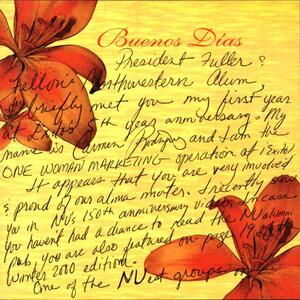 Buenos Dias
President Fuller &
Fellow Northwestern Alum,
I briefly met you my first year
at 7th year anniversary. My
name is Carmen Rodriguez and I am the
ONE WOMAN MARKETING operation at
It appears that you are very involved
& proud of our alma mater. I recently saw
you in NU's 150th anniversary video. Incase
you haven't had a chance to read the NU alumni
pub, you are also featured on page 19 of the
Winter 2000 edition!
One of the NU groups